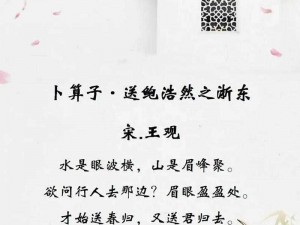 卜算子·送鲍浩然之浙东
宋.王观
水是眼波横，山是眉峰聚。
欲问行人去那边？眉眼盈盈处。
才始送春归，又送君归去。